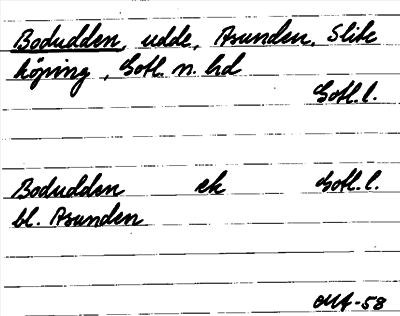 Bodudden, udde, Asunden, Slite
köping, Gotl. n. hd
Gotl. l.
Bodudden ek Gotl. l.
bl. Asunden
-58